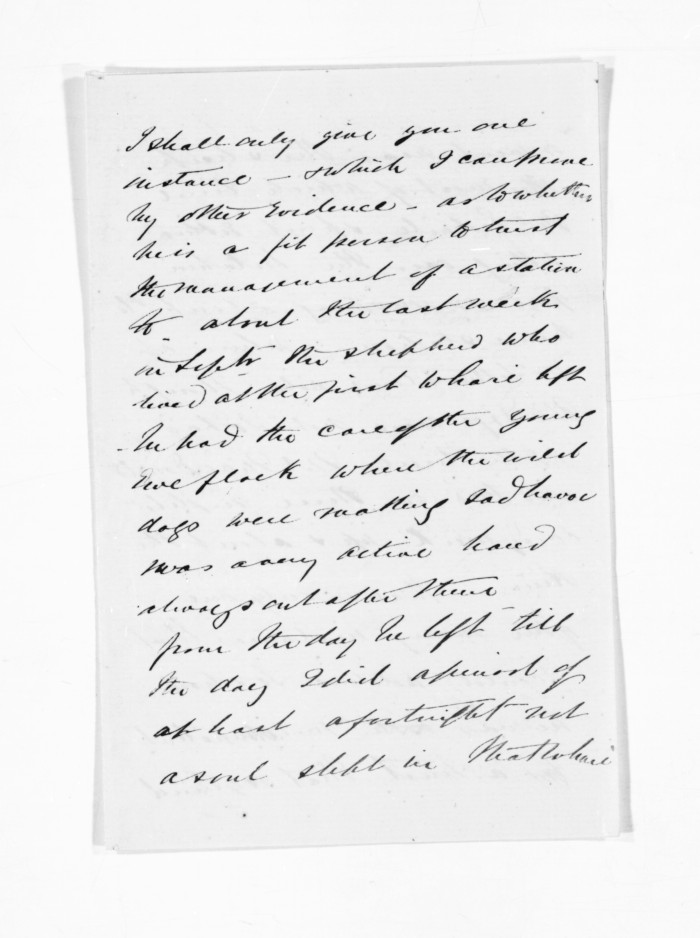 I shall only give you one
instance - which I can prove
by other Evidence - as to whether
he is a fit person to trust
the management of a station
to - about the last week
in Septr the shepherd who
lived at the first wharie left
- he had the care of the young
Ewe flock where the wild
dogs were making sad havoc
was a very active hand
always out after them
from the day he left till
the day I did a period of
at least a fortnight not
a soul slept in that wharie